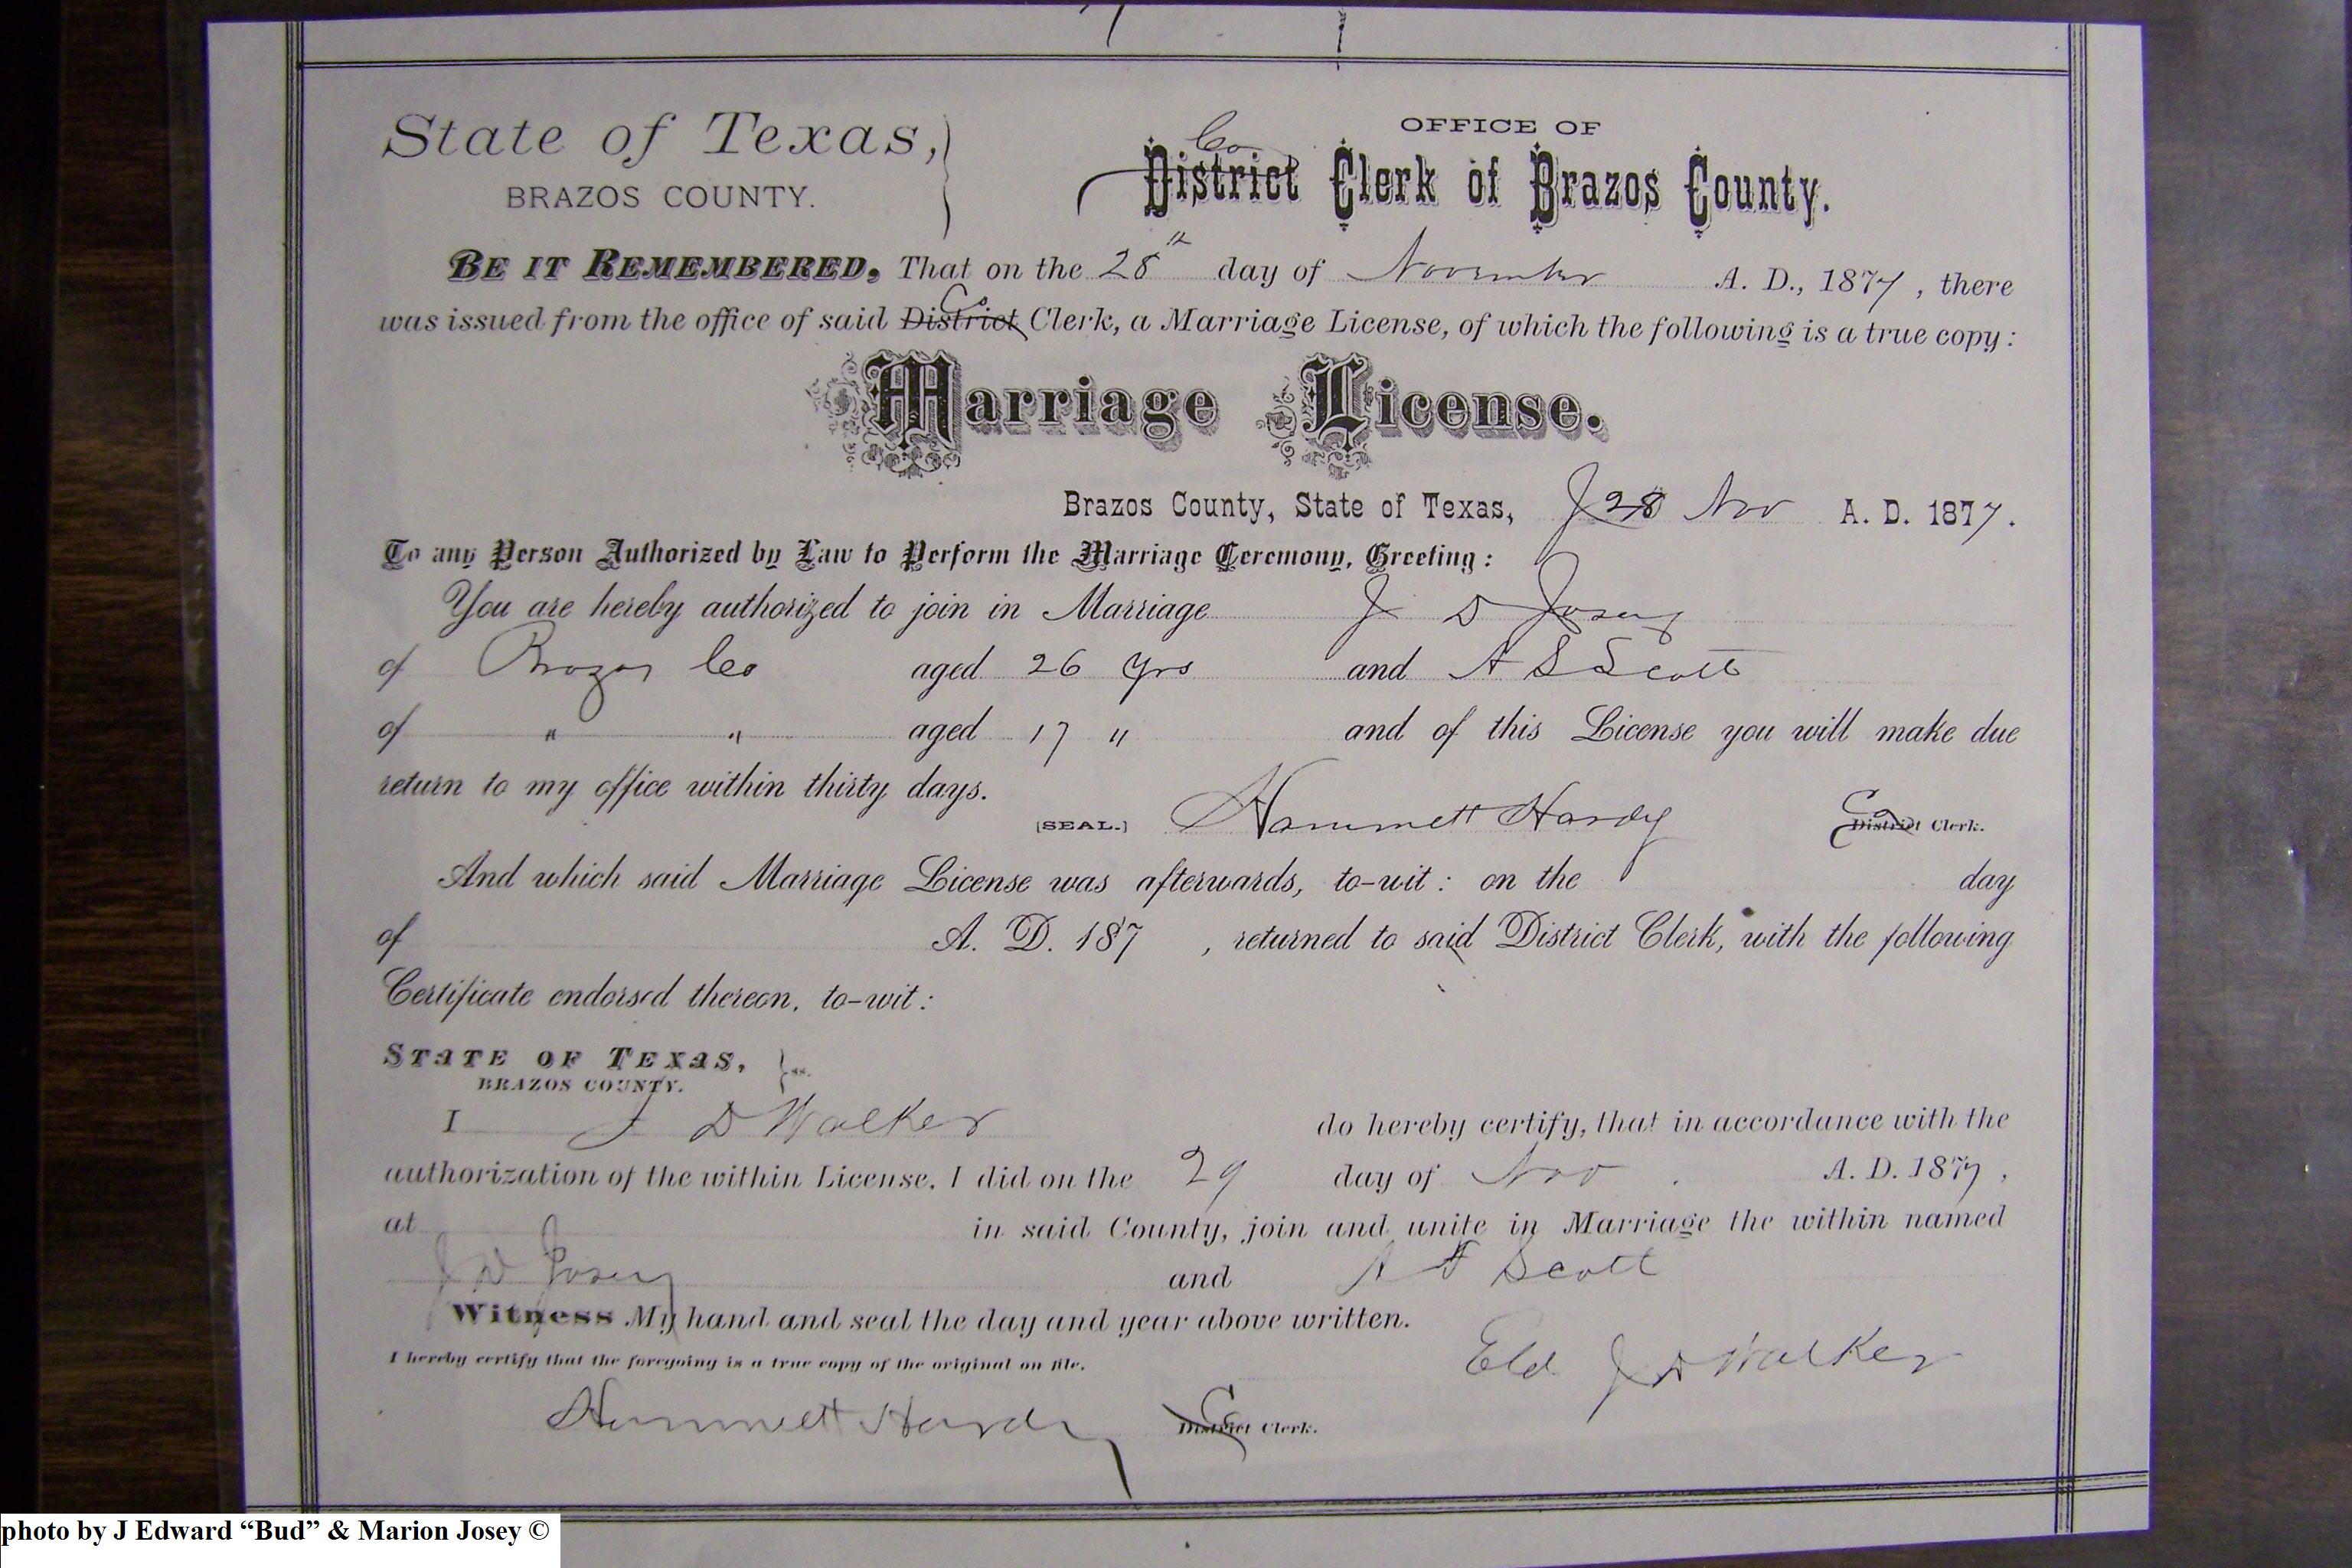 State of Texas,
BRAZOS COUNTY.
OFFICE OF
Co
District Clerk of Brazos County.
BE IT REMEMBERED, That on the 28th day of November A. D., 1877, there
Co
was issued from the office of said District Clerk, a Marriage License, of which the following is a true copy:
Marriage License.
Brazos County, State of Texas, 28 Nov A. D. 1877.
To any Person Authorized by Law to Perform the Marriage Ceremony, Greeting:
You are hereby authorized to join in Marriage J D Josey
of Brazos Co aged 26 yrs and A S Scott
of " " aged 17 " and of this License you will make due
return to my office within thirty days.
[SEAL.] Hammett Hardy Co District Clerk.
And which said Marriage License was afterwards, to-wit: on the day
of A. D. 187 , returned to said District Clerk, with the following
Certificate endorsed thereon, to-wit:
STATE OF TEXAS, ss.
BRAZOS COUNTY.
I J D Walker do hereby certify, that in accordance with the
authorization of the within License, I did on the 29 day of Nov A. D. 1877,
at in said County, join and unite in Marriage the within named
J D Josey and A Scott
Witness My hand and seal the day and year above written.
I hereby certify that the foregoing is a true copy of the original on file.
Eld J D Walker
Hammett Hardy Co District Clerk.
photo by J Edward “Bud” & Marion Josey ©